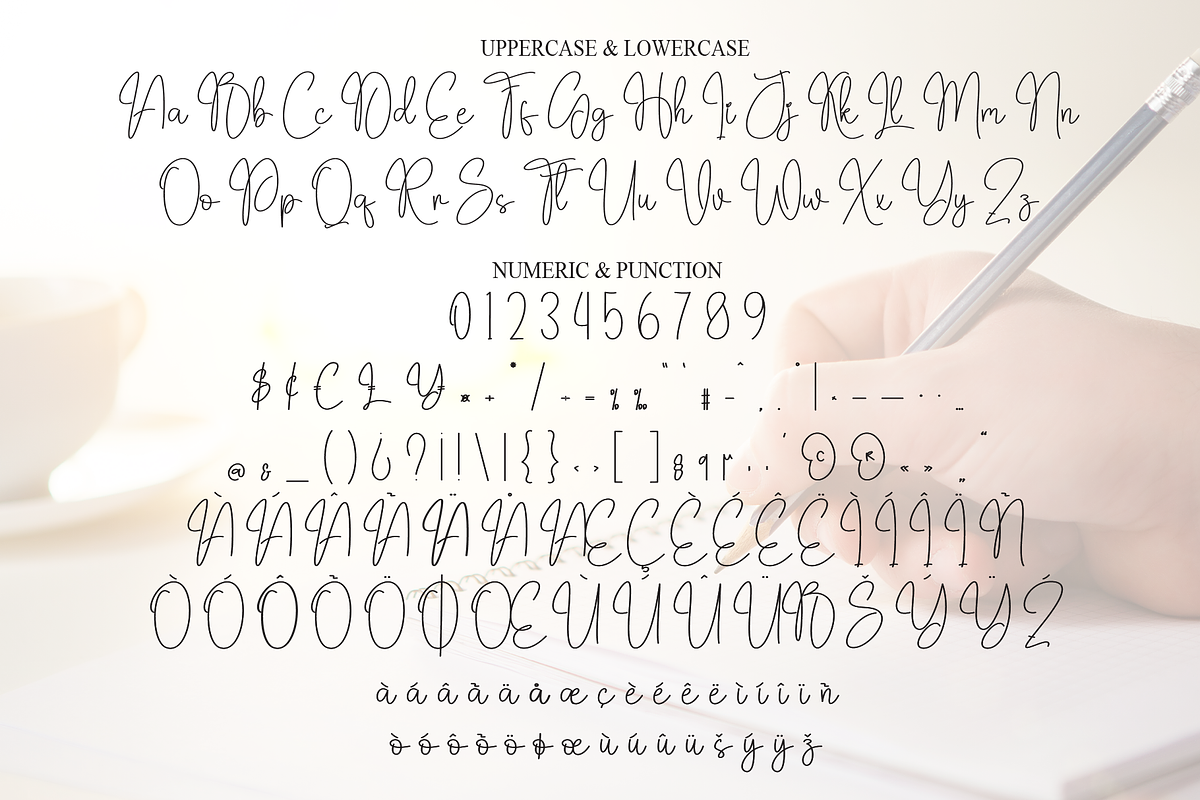 UPPERCASE & LOWERCASE
Aa Bb Cc Dd Ee Ff Gg Hh Ii Jj Kk Ll Mm Nn
Oo Pp Qq Rr Ss Tt Uu Vv Ww Xx Yy Zz
NUMERIC & PUNCTION
0123456789
$ ¢ € £ ¥ ¤ + • / ÷ = % ‰ " ` # - ˆ , . • | * – — · · …
@ & _ ( ) ¿ ? ¡ ! \ | { } ‹ › [ ] § ¶ µ . . ' © ® « » „ “
À Á Â Ã Ä Å Æ Ç È É Ê Ë Ì Í Î Ï Ñ
Ò Ó Ô Õ Ö Ø Œ Ù Ú Û Ü ß Š Ý Ÿ Ž
à á â ã ä å æ ç è é ê ë ì í î ï ñ
ò ó ô õ ö ø œ ù ú û ü š ý ÿ ž